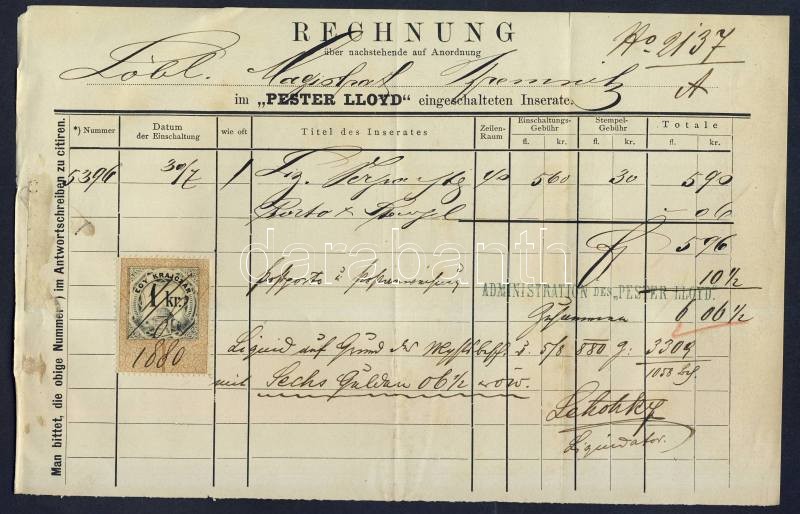 RECHNUNG
No 2137
über nachstehende auf Anordnung
Löbl. Magistrat Kremnitz
A
im „PESTER LLOYD“ eingeschalteten Inserate.
*) Nummer Datum der Einschaltung wie oft Titel des Inserates Zeilen-Raum Einschaltungs-Gebühr fl. kr. Stempel-Gebühr fl. kr. Totale fl. kr.
5396 30/7 1 5 60 30 5 90
Porto & Stempel - 06
5 96
10 ½
ADMINISTRATION DES „PESTER LLOYD.“
Zusammen 6 06 ½
EGY KRAJCZÁR
1 kr.
1880
Liquid auf Grund des 5/8 880 3309
mit Sechs Gulden 06 ½ 1058
Liquidator.
Man bittet, die obige Nummer *) im Antwortschreiben zu citiren.
darabanth